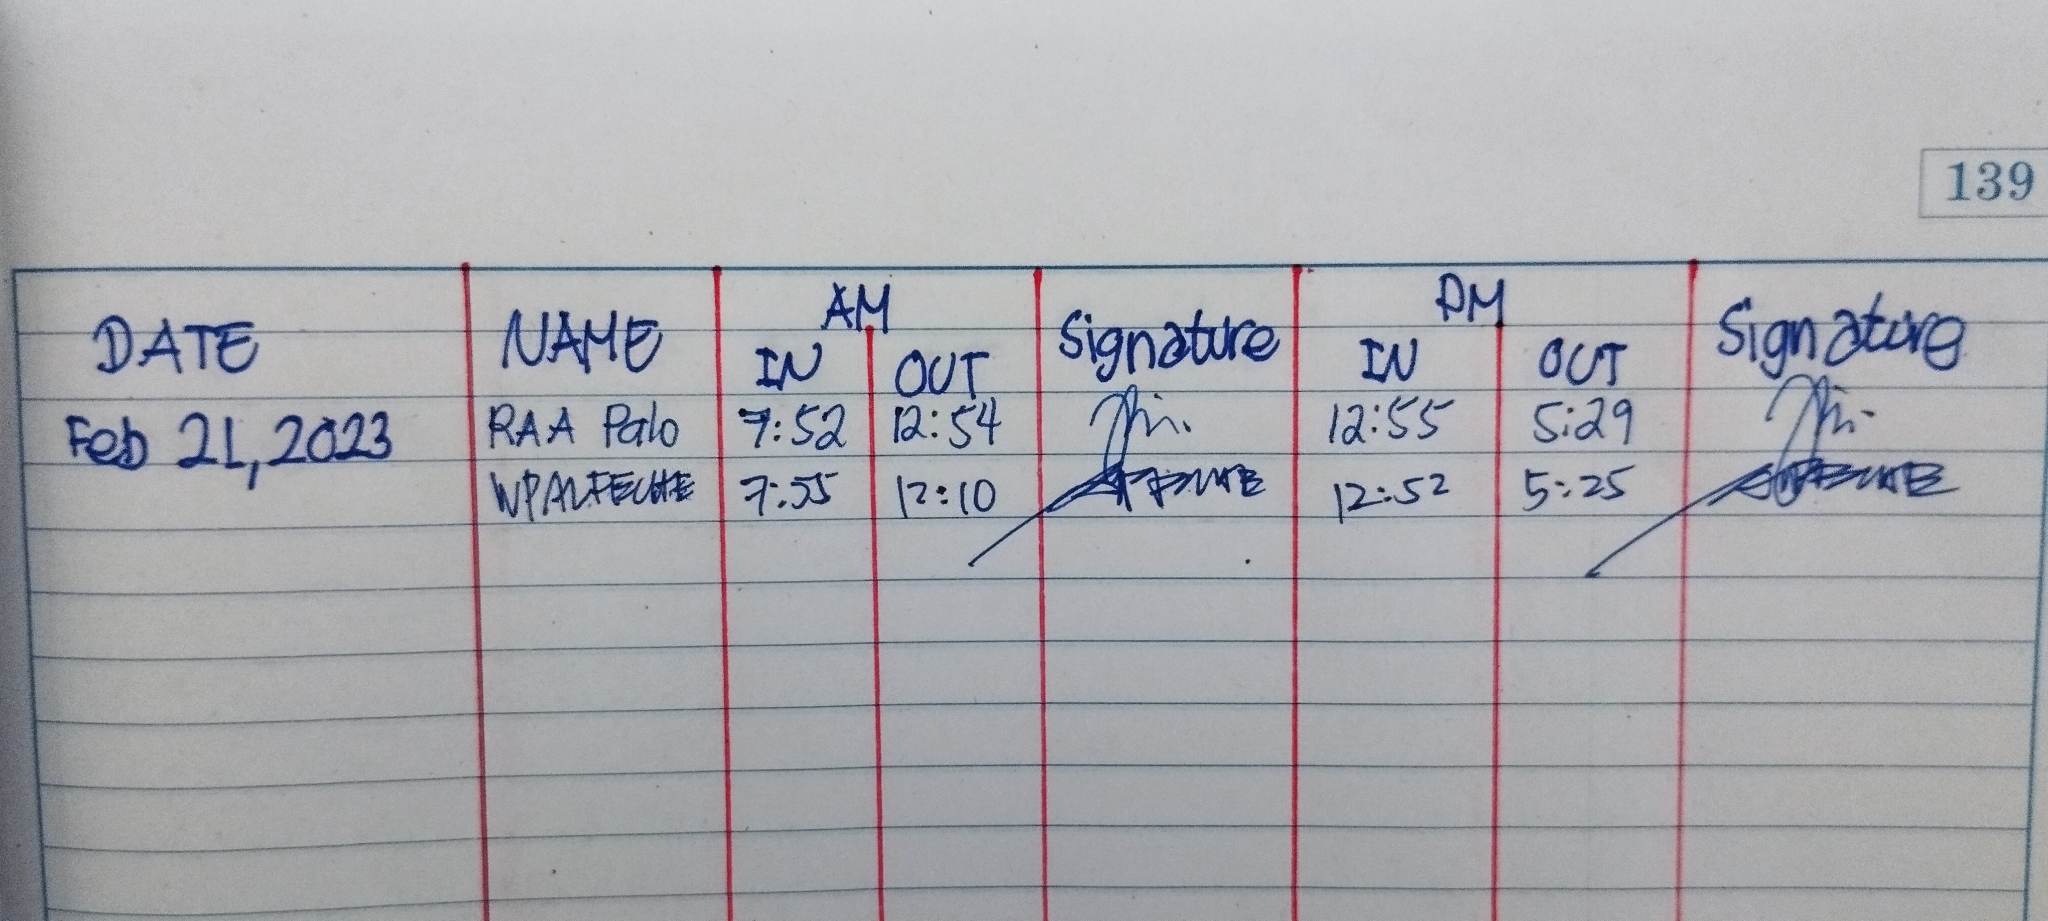 139
DATE NAME AM Signature PM Signature
IN OUT IN OUT
Feb 21, 2023 RAA Palo 7:52 12:54 12:55 5:29
WPALFECHE 7:55 12:10 12:52 5:25